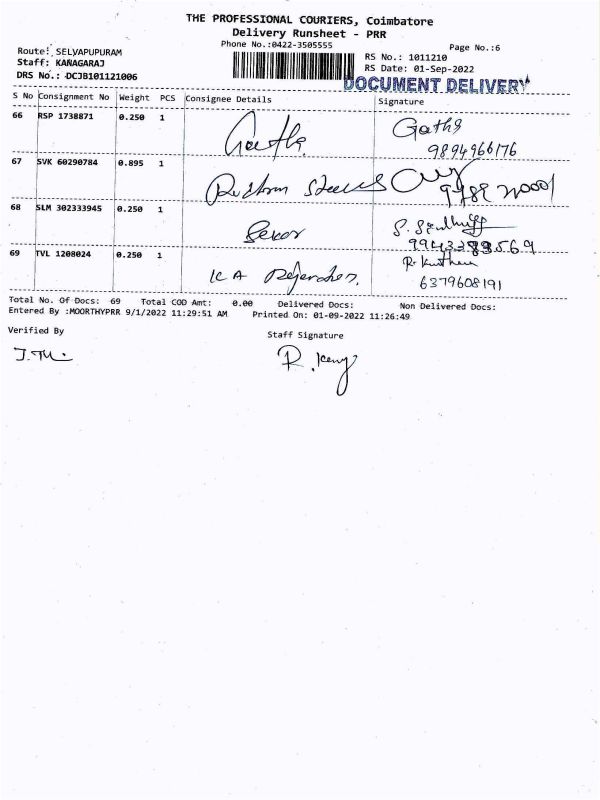 THE PROFESSIONAL COURIERS, Coimbatore
Delivery Runsheet - PRR
Phone No.:0422-3505555
Page No.:6
Route: SELVAPUPURAM
Staff: KANAGARAJ
DRS No.: DCJB101121006
RS No.: 1011210
RS Date: 01-Sep-2022
DOCUMENT DELIVERY
S No Consignment No Weight PCS Consignee Details Signature
66 RSP 1738871 0.250 1
9894966176
67 SVK 60290784 0.895 1
68 SLM 302333945 0.250 1 Sekar
69 TVL 1208024 0.250 1 K A
6379608191
Total No. Of Docs: 69 Total COD Amt: 0.00 Delivered Docs: Non Delivered Docs:
Entered By :MOORTHYPRR 9/1/2022 11:29:51 AM Printed On: 01-09-2022 11:26:49
Verified By
Staff Signature